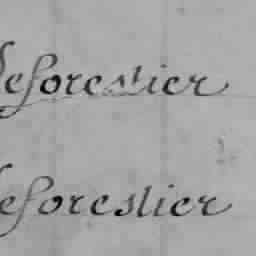 Leforestier
Leforestier